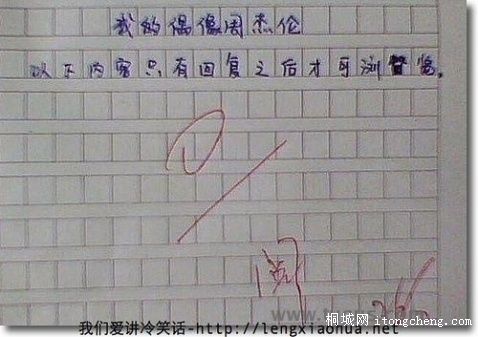 我的偶像周杰伦
以下内容只有回复之后才可浏览。
阅
www.
桐城网 itongcheng.com
我们爱讲冷笑话-http://lengxiaohua.net/